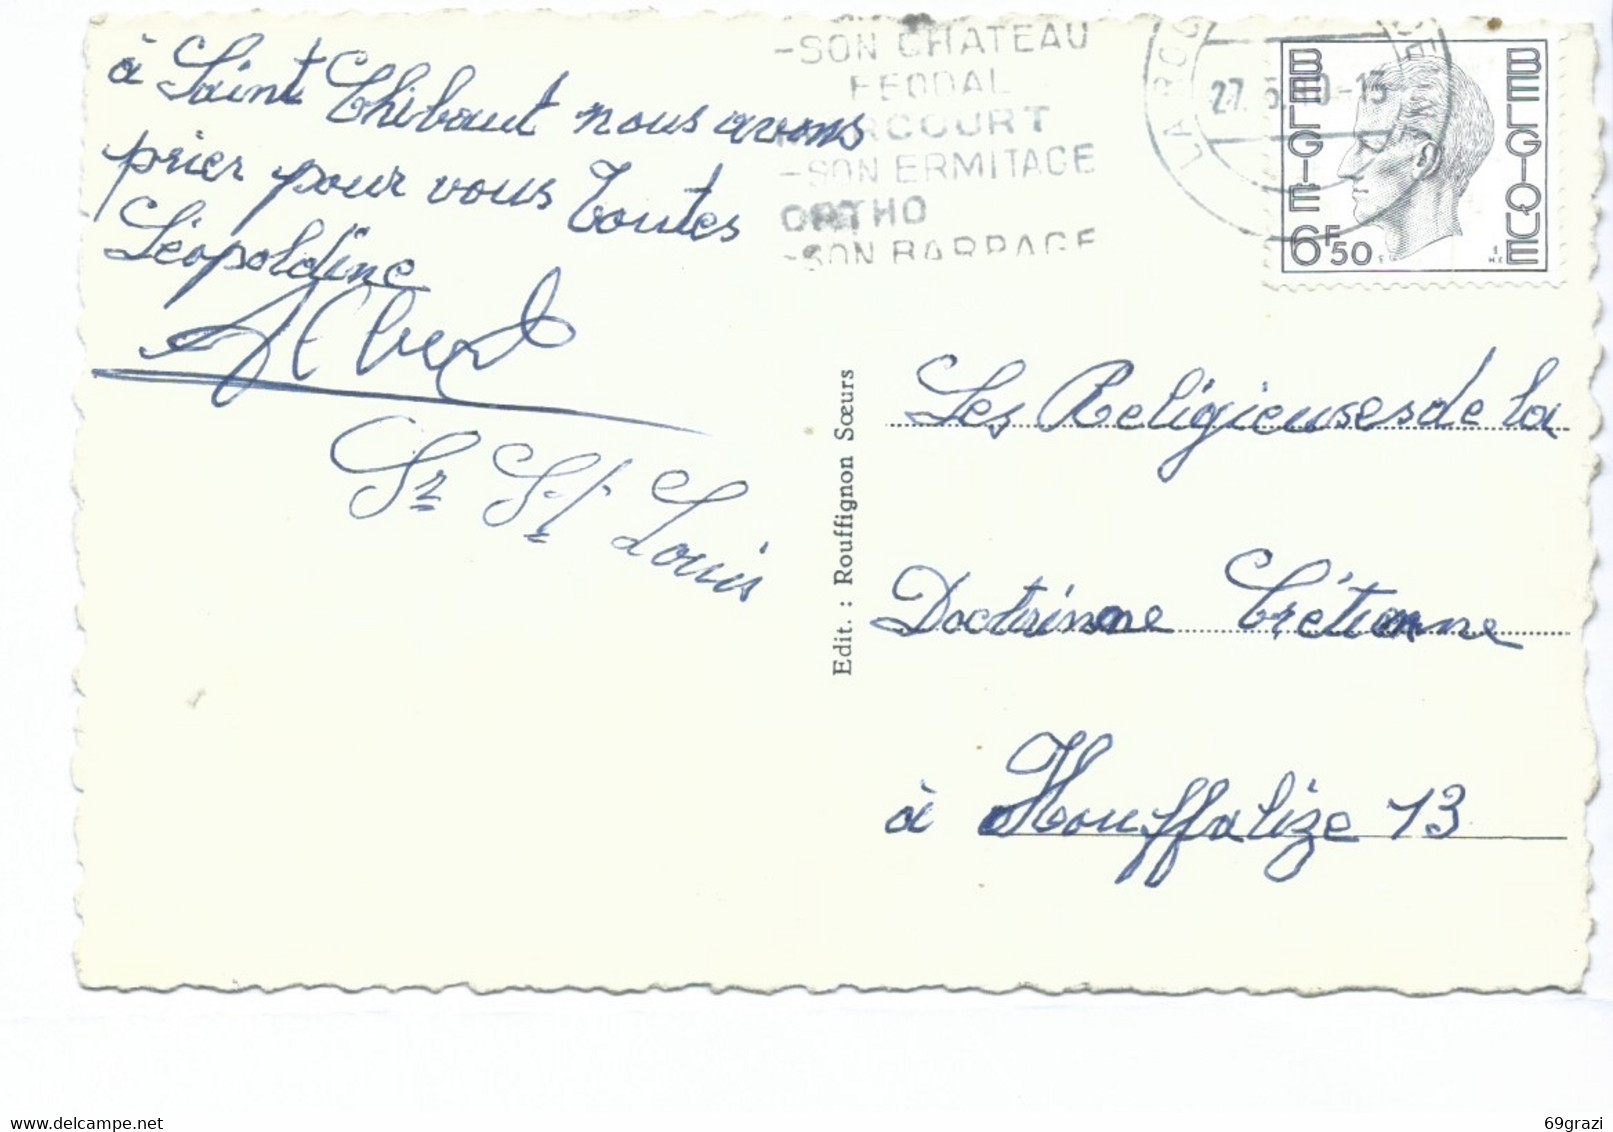 à Saint Thibaut nous avons
prier pour vous toutes
Léopoldine
Albert
Sr St Louis
-SON CHATEAU
FEODAL
-SON ERMITAGE
ORTHO
-SON BARRAGE
27. 5. 0-13
BELGIE
BELGIQUE
6F50
Edit. : Rouffignon Sœurs
Les Religieuses de la
Doctrinne Crétienne
à Houffalize 13
69grazi
delcampe.net